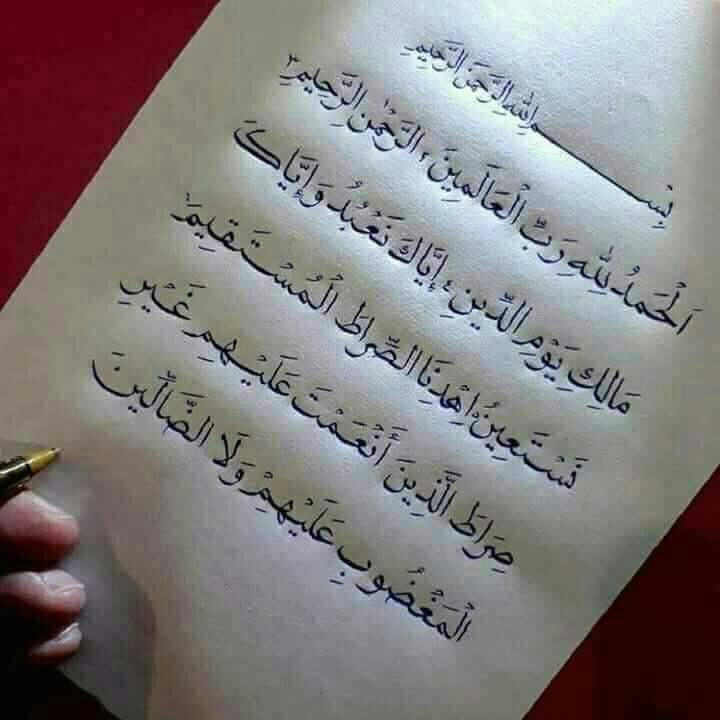 بِسْمِ اللهِ الرَّحْمَنِ الرَّحِيمِ
اَلْحَمْدُ لِلهِ رَبِّ الْعَالَمِينَ ١ الرَّحْمَنِ الرَّحِيمِ ٣
مَالِكِ يَوْمِ الدِّينِ ٤ إِيَّاكَ نَعْبُدُ وَإِيَّاكَ
نَسْتَعِينُ اِهْدِنَا الصِّرَاطَ الْمُسْتَقِيمَ
صِرَاطَ الَّذِينَ أَنْعَمْتَ عَلَيْهِمْ غَيْرِ
الْمَغْضُوبِ عَلَيْهِمْ وَلَا الضَّالِّينَ